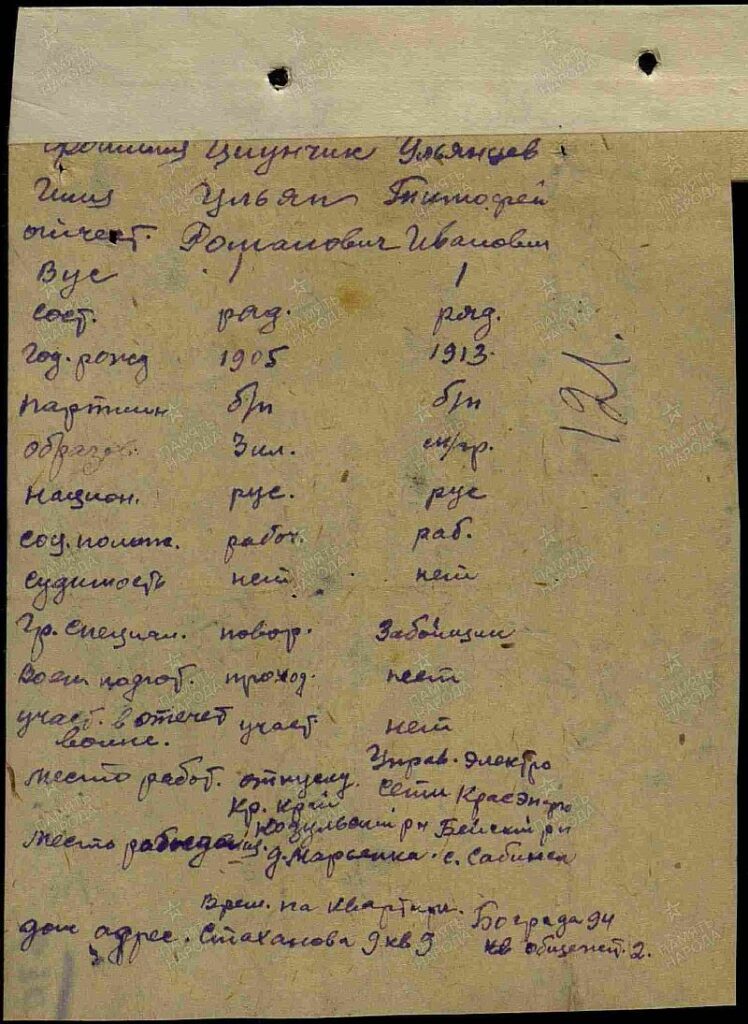 Фамилия Циунчик Ульянцев
Имя Ульян Тимофей
отчест. Романович Иванович
Вус 1 1
сост. ряд. ряд.
Год. рожд 1905 1913
партийн б/п б/п
образов. 3 кл. м/гр.
национ. рус. рус
соц. полож. рабоч. раб.
судимость нет нет
Гр. специал. повар. Забойщик
Воен подгот. проход. нет
участ. в отечет участ нет
войне.
Управ. электро
место работ. отпуску. сети КрасЭнерго
Кр. край
Козульский рн Бейский рн
место рожден д. Марьевка. с. Сабинка
Врем. на квартире.
Бограда 94
дом адрес. Стаханова 9 кв 9 кв общежит. 2.
121.